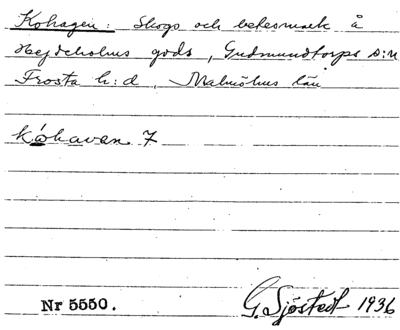 Kohagen: Skogs och betesmark å
Hejdeholms gods, Gudmundtorps s:n
Frosta h:d, Malmöhus län
kóhaven 7
Nr 5550. G. Sjöstedt 1936